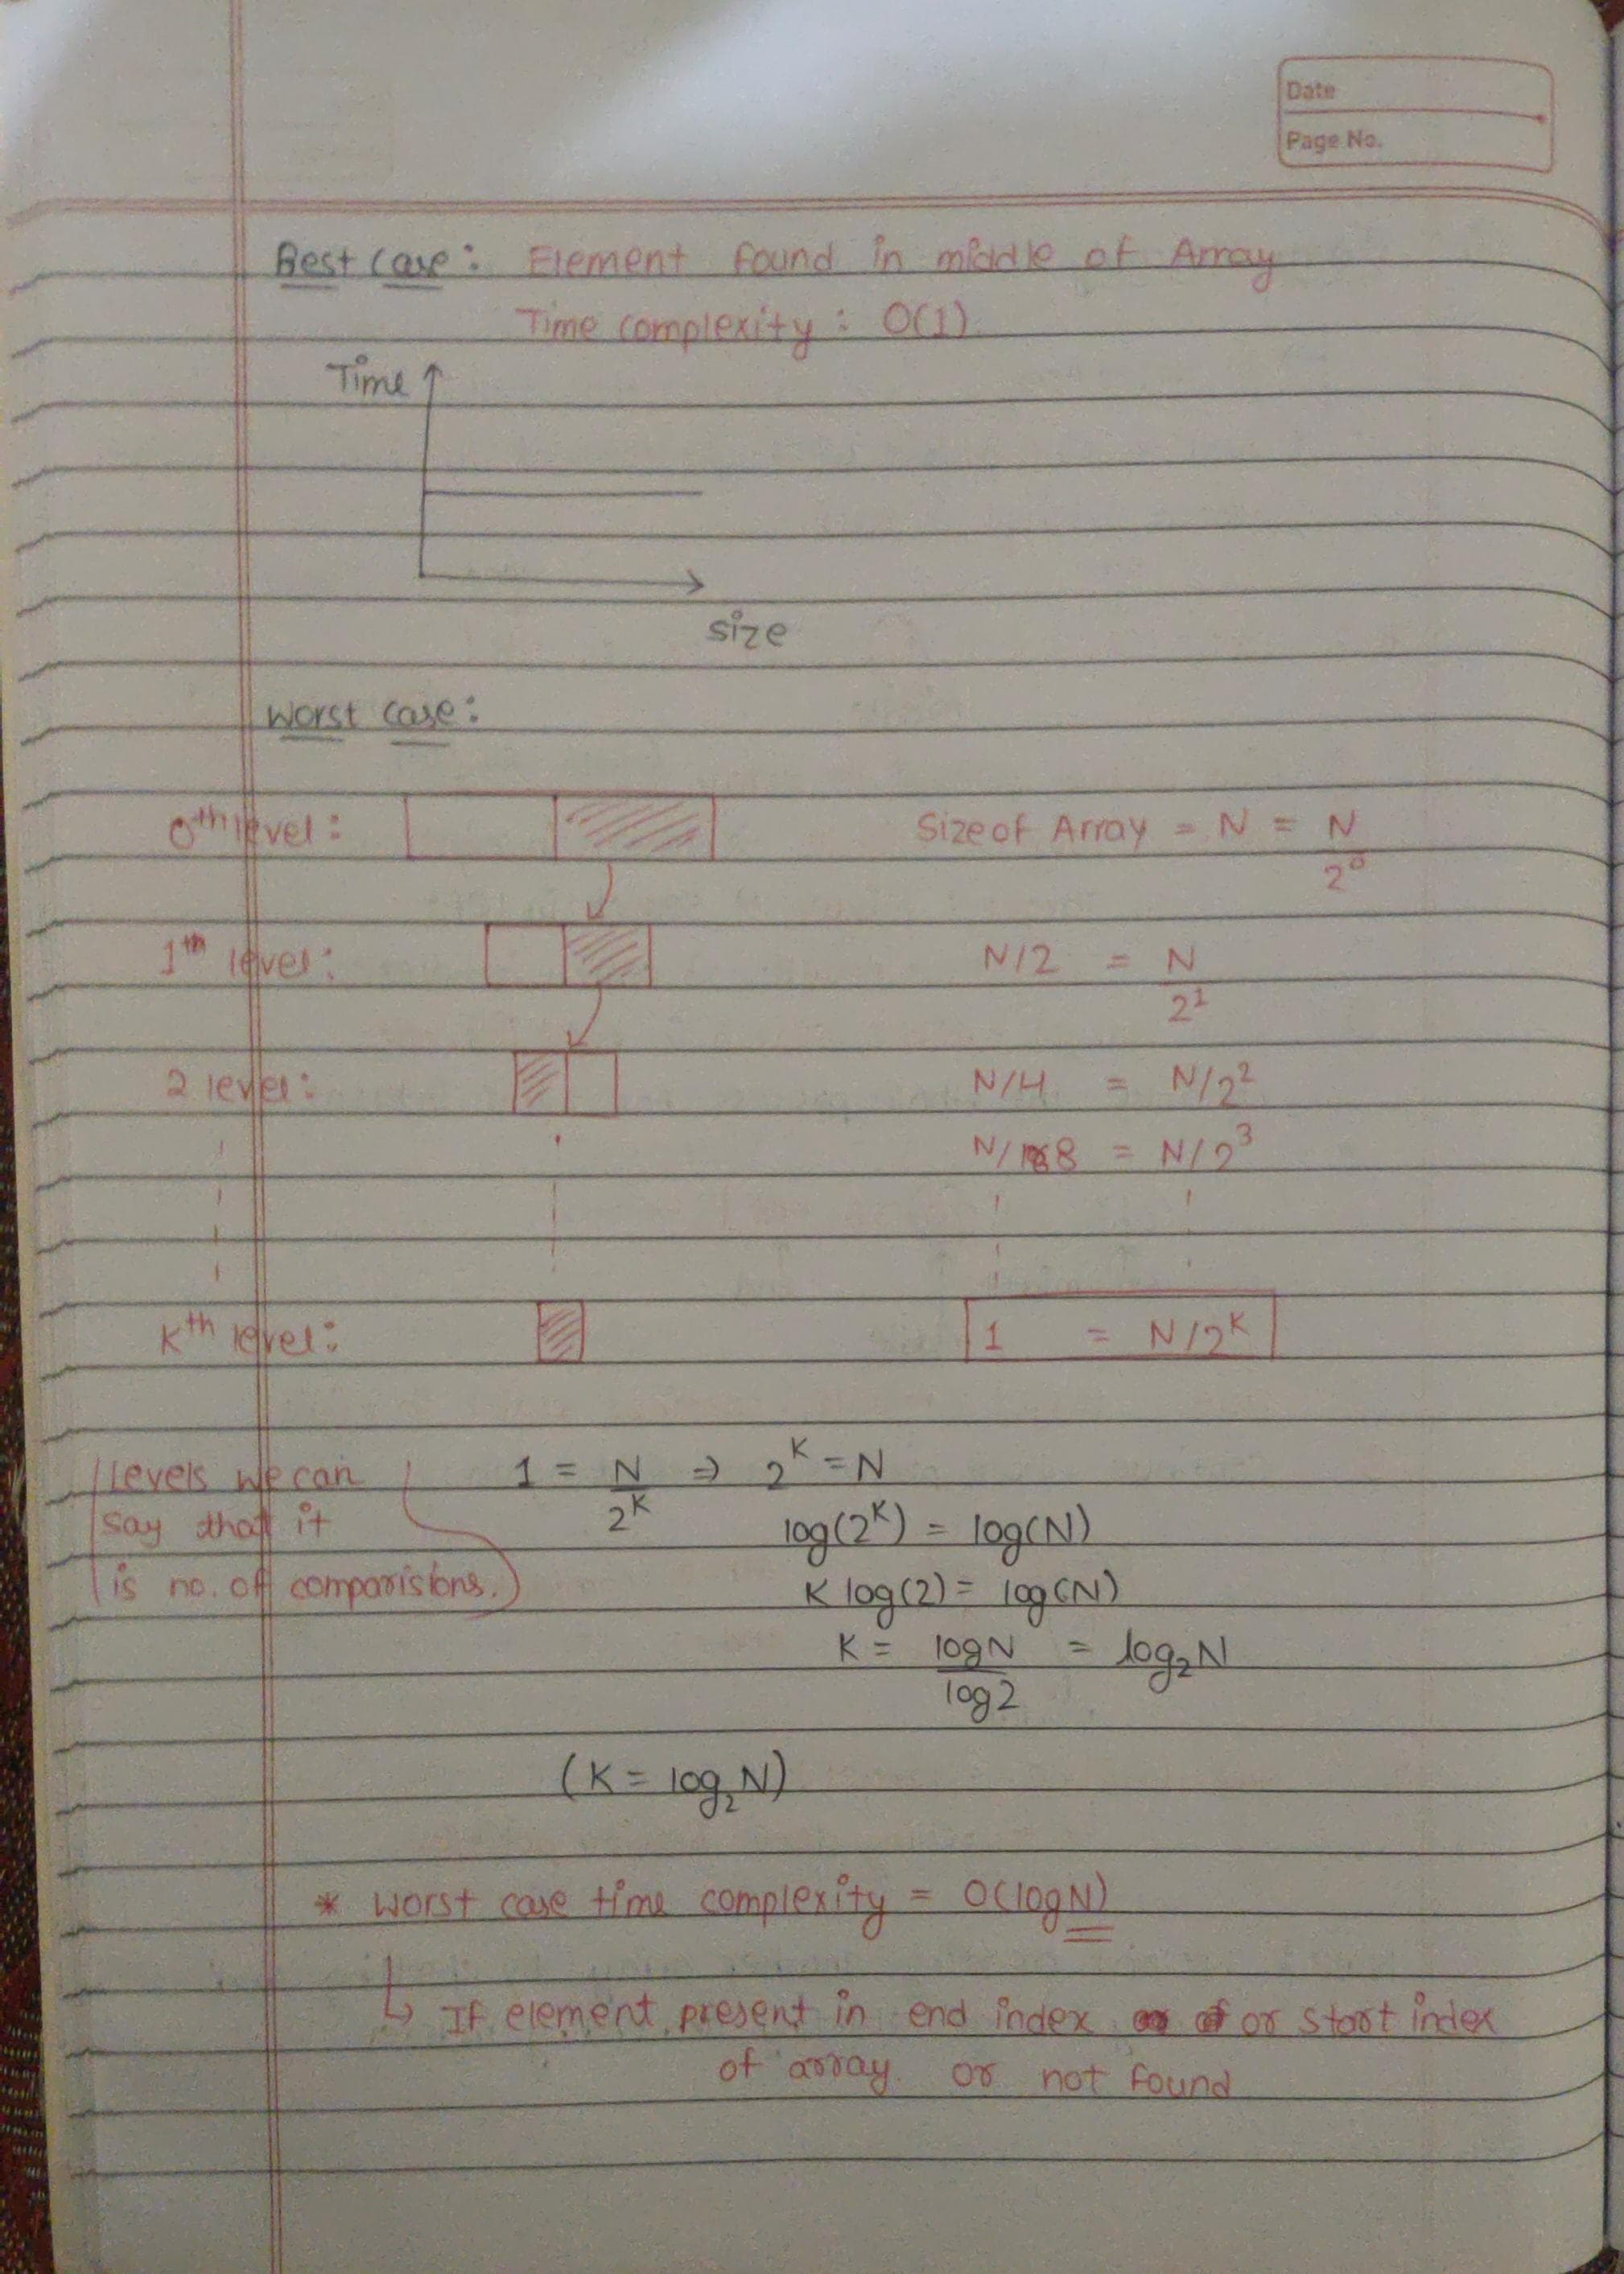 Date
Page No.
Best case: Element found in middle of Array
Time complexity: O(1)
Time
size
Worst case:
0th level: Size of Array = N = N/2^0
1th level: N/2 = N/2^1
2 level: N/4 = N/2^2
N/8 = N/2^3
Kth level: 1 = N/2^K
Levels we can
say that it
is no. of comparisions.
1 = N/2^K ⇒ 2^K = N
log(2^K) = log(N)
K log(2) = log(N)
K = logN/log2 = log₂N
(K = log₂N)
* Worst case time complexity = O(logN)
↳ If element present in end index or start index
of array or not found